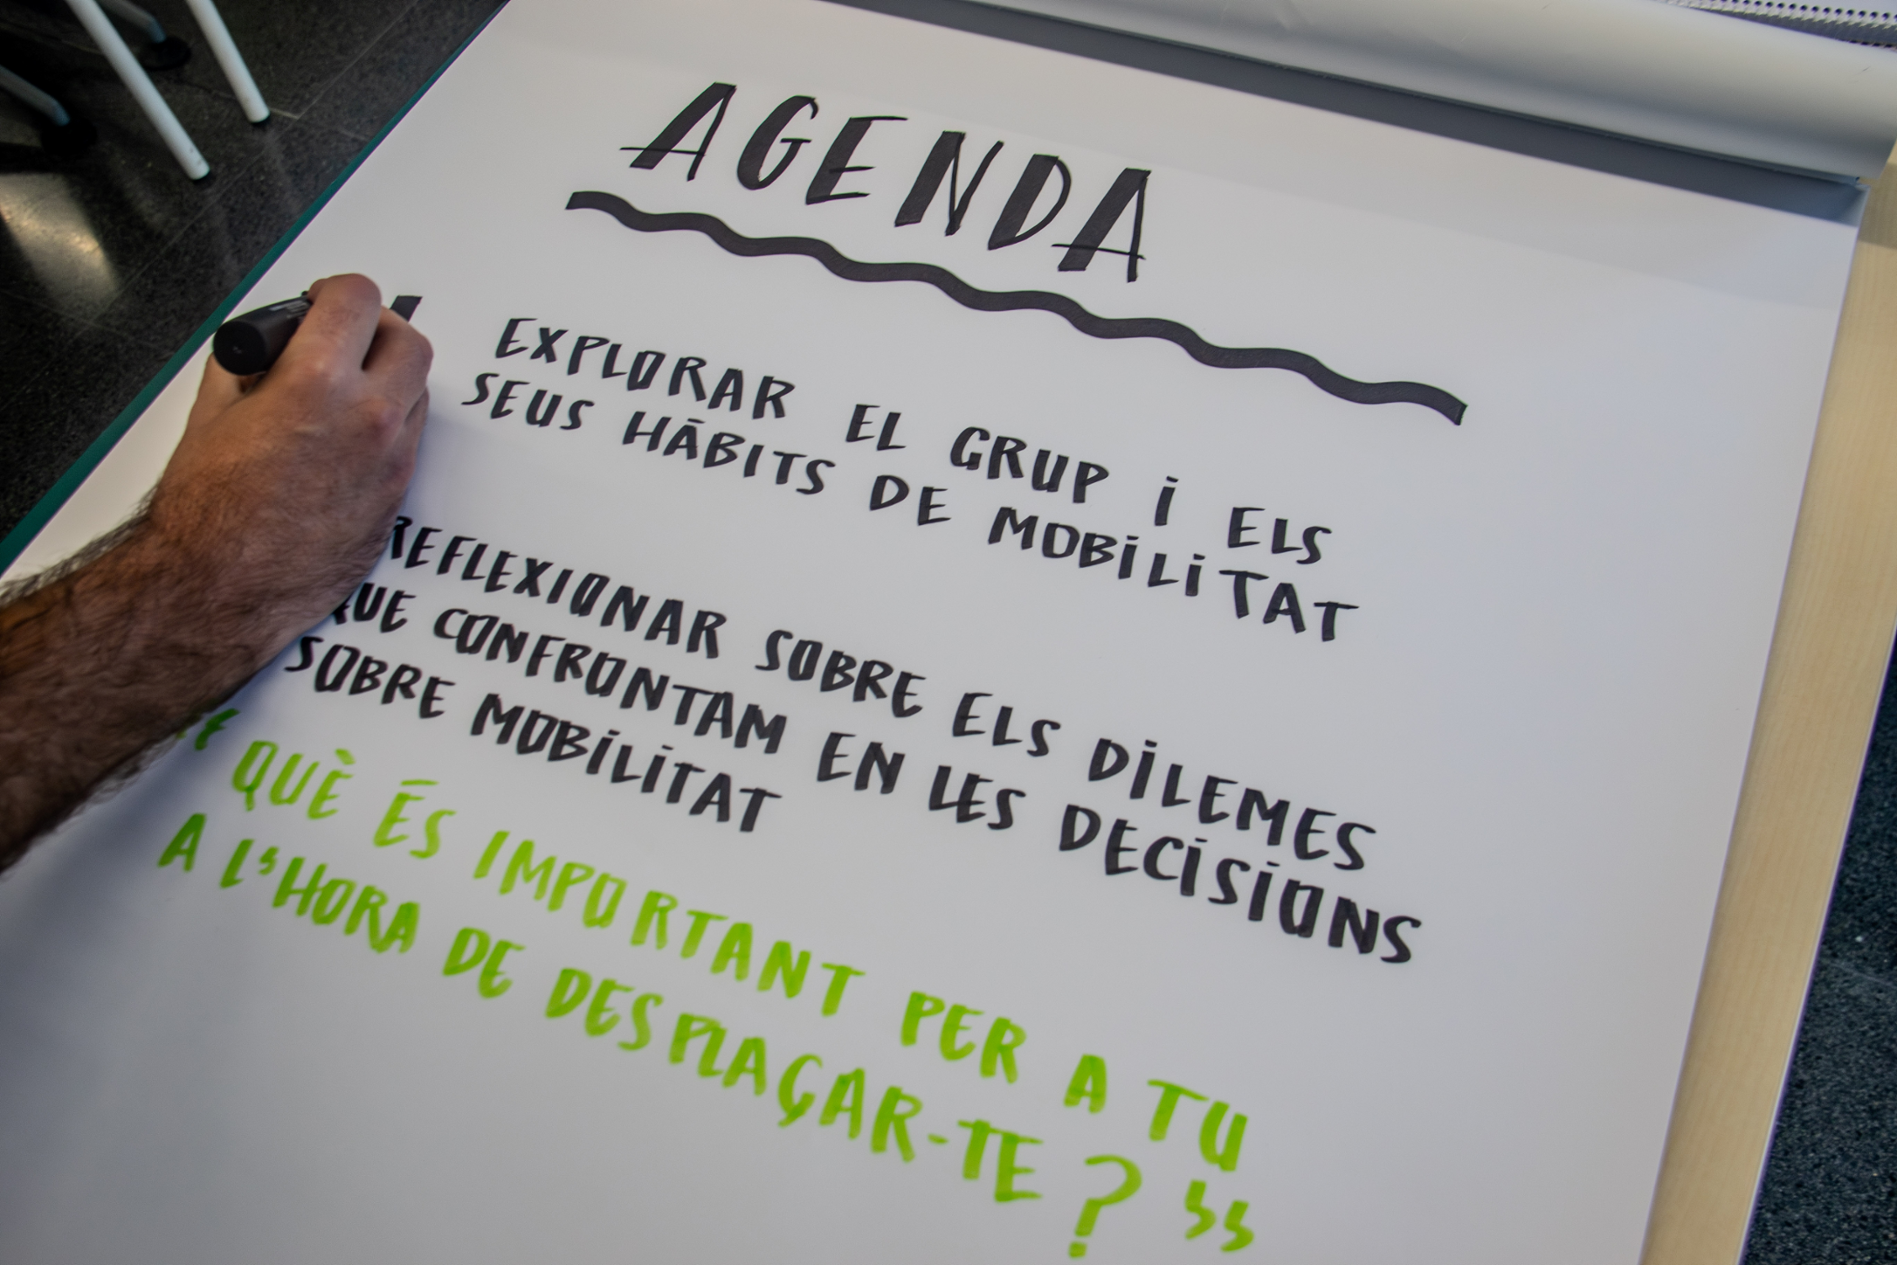 AGENDA
EXPLORAR EL GRUP i ELS
SEUS HÀBITS DE MOBiLiTAT
REFLEXIONAR SOBRE ELS DiLEMES
QUE CONFRONTAM EN LES DECiSiONS
SOBRE MOBiLiTAT
“ QUÈ ÉS IMPORTANT PER A TU
A L'HORA DE DESPLAÇAR-TE? ”